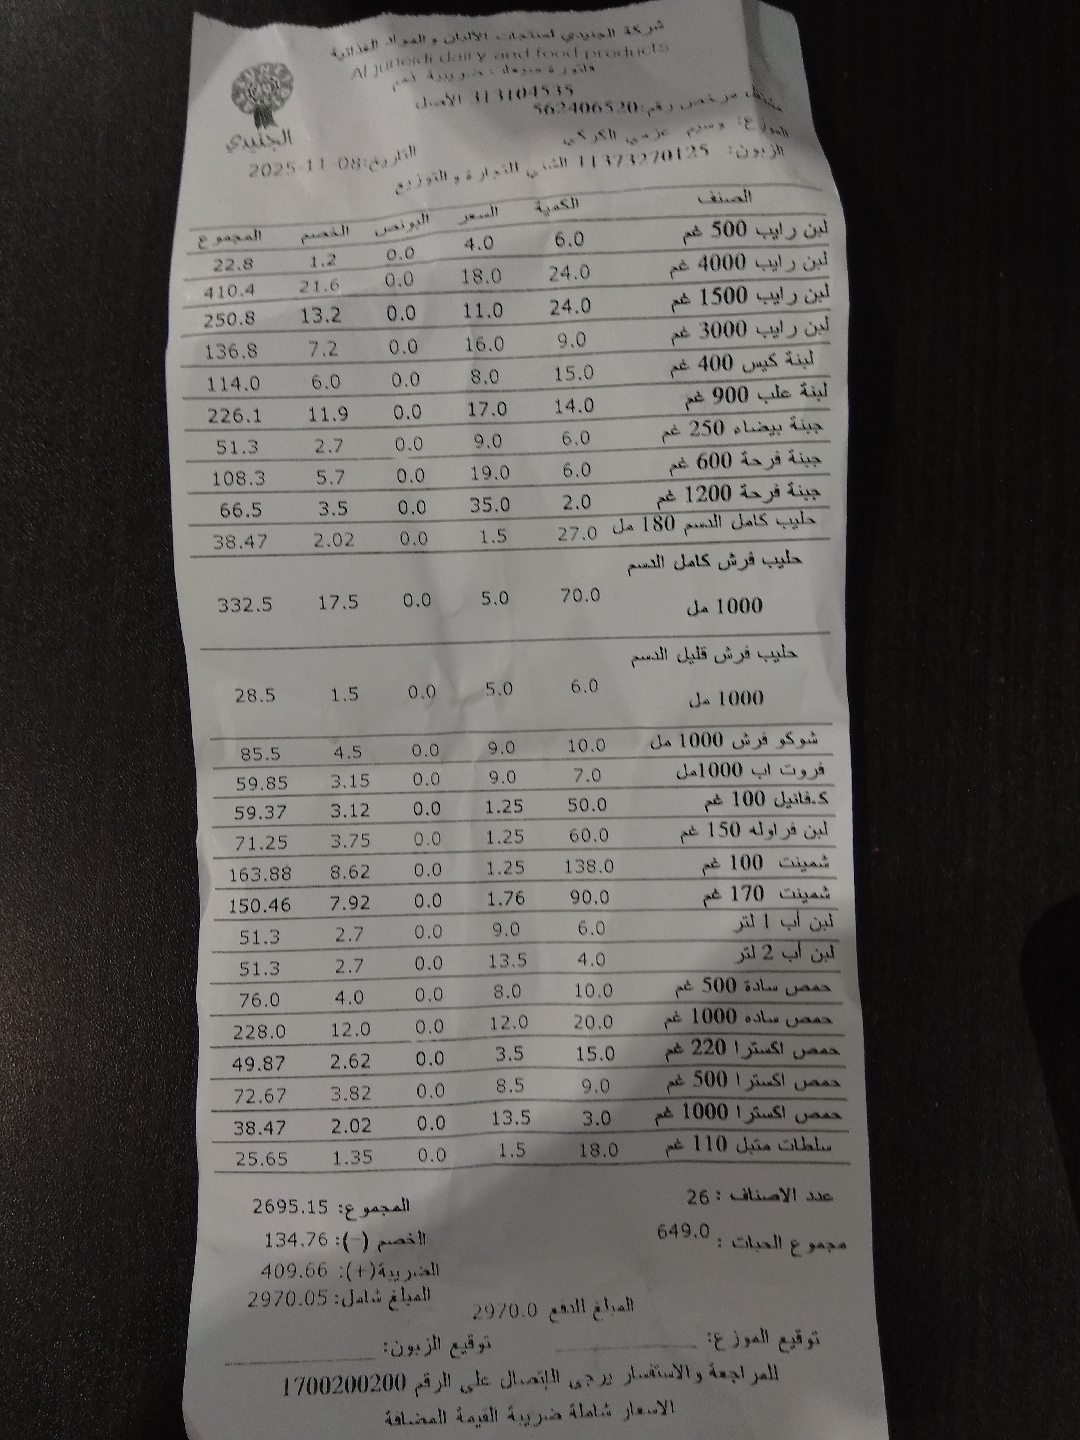 شركة الجنيدي لمنتجات الألبان والمواد الغذائية
Al juneidi dairy and food products
فاتورة مبيعات ضريبية رقم
313104535 الأصل
مشتغل مرخص رقم:562406520
الموزع: وسيم عزمي الكركي
الجنيدي
التاريخ:2025-11-08
الزبون: 11373270125 الشني للتجارة والتوزيع
الصنف الكمية السعر البونص الخصم المجموع
لبن رايب 500 غم 6.0 4.0 0.0 1.2 22.8
لبن رايب 4000 غم 24.0 18.0 0.0 21.6 410.4
لبن رايب 1500 غم 24.0 11.0 0.0 13.2 250.8
لبن رايب 3000 غم 9.0 16.0 0.0 7.2 136.8
لبنة كيس 400 غم 15.0 8.0 0.0 6.0 114.0
لبنة علب 900 غم 14.0 17.0 0.0 11.9 226.1
جبنة بيضاء 250 غم 6.0 9.0 0.0 2.7 51.3
جبنة فرحة 600 غم 6.0 19.0 0.0 5.7 108.3
جبنة فرحة 1200 غم 2.0 35.0 0.0 3.5 66.5
حليب كامل الدسم 180 مل 27.0 1.5 0.0 2.02 38.47
حليب فرش كامل الدسم
1000 مل 70.0 5.0 0.0 17.5 332.5
حليب فرش قليل الدسم
1000 مل 6.0 5.0 0.0 1.5 28.5
شوكو فرش 1000 مل 10.0 9.0 0.0 4.5 85.5
فروت اب 1000مل 7.0 9.0 0.0 3.15 59.85
ك.فانيل 100 غم 50.0 1.25 0.0 3.12 59.37
لبن فراوله 150 غم 60.0 1.25 0.0 3.75 71.25
شمينت 100 غم 138.0 1.25 0.0 8.62 163.88
شمينت 170 غم 90.0 1.76 0.0 7.92 150.46
لبن أب 1 لتر 6.0 9.0 0.0 2.7 51.3
لبن أب 2 لتر 4.0 13.5 0.0 2.7 51.3
حمص سادة 500 غم 10.0 8.0 0.0 4.0 76.0
حمص ساده 1000 غم 20.0 12.0 0.0 12.0 228.0
حمص اكسترا 220 غم 15.0 3.5 0.0 2.62 49.87
حمص اكسترا 500 غم 9.0 8.5 0.0 3.82 72.67
حمص اكسترا 1000 غم 3.0 13.5 0.0 2.02 38.47
سلطات متبل 110 غم 18.0 1.5 0.0 1.35 25.65
عدد الاصناف : 26 المجموع: 2695.15
مجموع الحبات : 649.0 الخصم (-): 134.76
الضريبة(+): 409.66
المبلغ شامل: 2970.05
المبلغ للدفع 2970.0
توقيع الموزع: توقيع الزبون:
للمراجعة والاستفسار يرجى الإتصال على الرقم 1700200200
الاسعار شاملة ضريبة القيمة المضافة